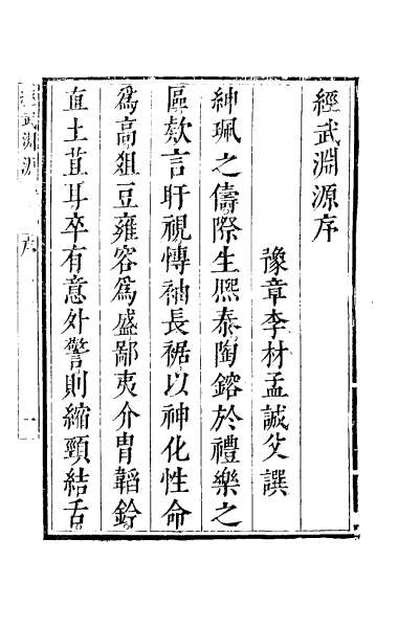 經武淵源序
豫章李材孟誠父譔
紳珮之儔際生熈泰陶鎔於禮樂之
區欬言盱視慱袖長裾以神化性命
爲高俎豆雍容爲盛鄙夷介胄韜鈐
直土苴耳卒有意外警則縮頸結舌
經武淵源
序
一